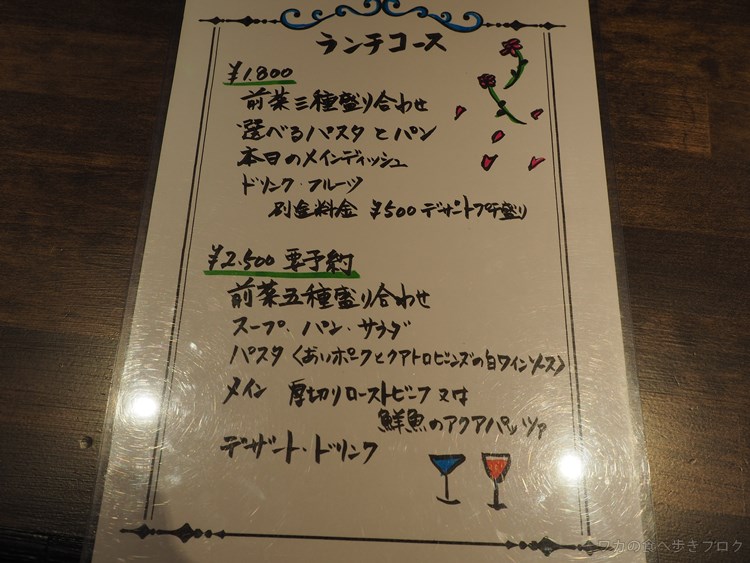 ランチコース
¥1.800
前菜三種盛り合わせ
選べるパスタとパン
本日のメインディッシュ
ドリンク・フルーツ
別途料金 ¥500 デザートプチ盛り
¥2.500 要予約
前菜五種盛り合わせ
スープ・パン・サラダ
パスタ〈あいポークとクアトロビーンズの白ワインソース〉
メイン 厚切りローストビーフ 又は
鮮魚のアクアパッツァ
デザート・ドリンク
フカの食べ歩きブログ